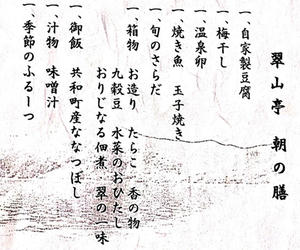 翠山亭 朝の膳
一、自家製豆腐
一、梅干し
一、温泉卵
一、焼き魚 玉子焼き
一、旬のさらだ
一、箱物 お造り たらこ 香の物
九穀豆 水菜のおひたし
おりじなる佃煮 翠の一味
一、御飯 共和町産ななつぼし
一、汁物 味噌汁
一、季節のふるーつ